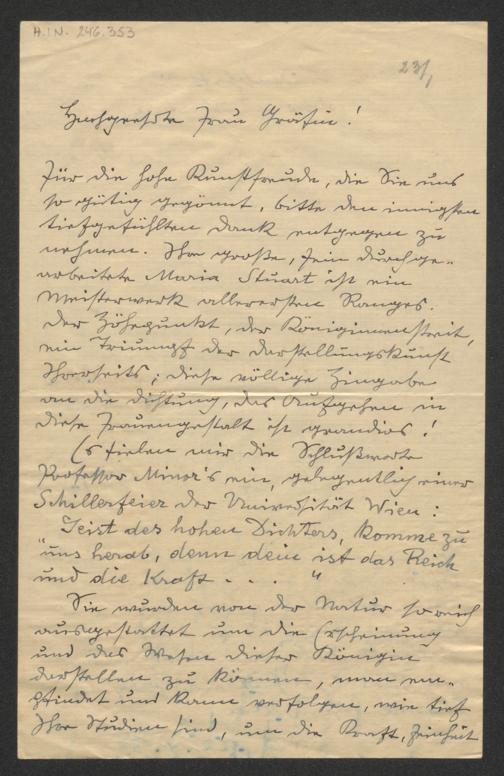 H.I.N. 246.353
23/1
Hochgeehrte Frau Gräfin!
Für die hohe Kunstfreude, die Sie uns
so gütig gegönnt, bitte den innigsten
tiefgefühlten Dank entgegen zu
nehmen. Ihre große, fein durchge-
arbeitete Maria Stuart ist ein
Meisterwerk allerersten Ranges.
Der Höhepunkt, der Königinnenstreit,
ein Triumpf der Darstellungskunst
Ihrerseits; diese völlige Hingabe
an die Dichtung, das Aufgehen in
diese Frauengestalt ist grandios!
Es fielen mir die Schlußworte
Professor Minor's ein, gelegentlich einer
Schillerfeier der Universität Wien:
"Geist des hohen Dichters, komme zu
uns herab, denn dein ist das Reich
und die Kraft . . . . "
Sie wurden von der Natur so reich
ausgestattet um die Erscheinung
und das Wesen dieser Königin
darstellen zu können, man em-
pfindet und kann verfolgen, wie tief
Ihre Studien sind, um die Kraft, Feinheit